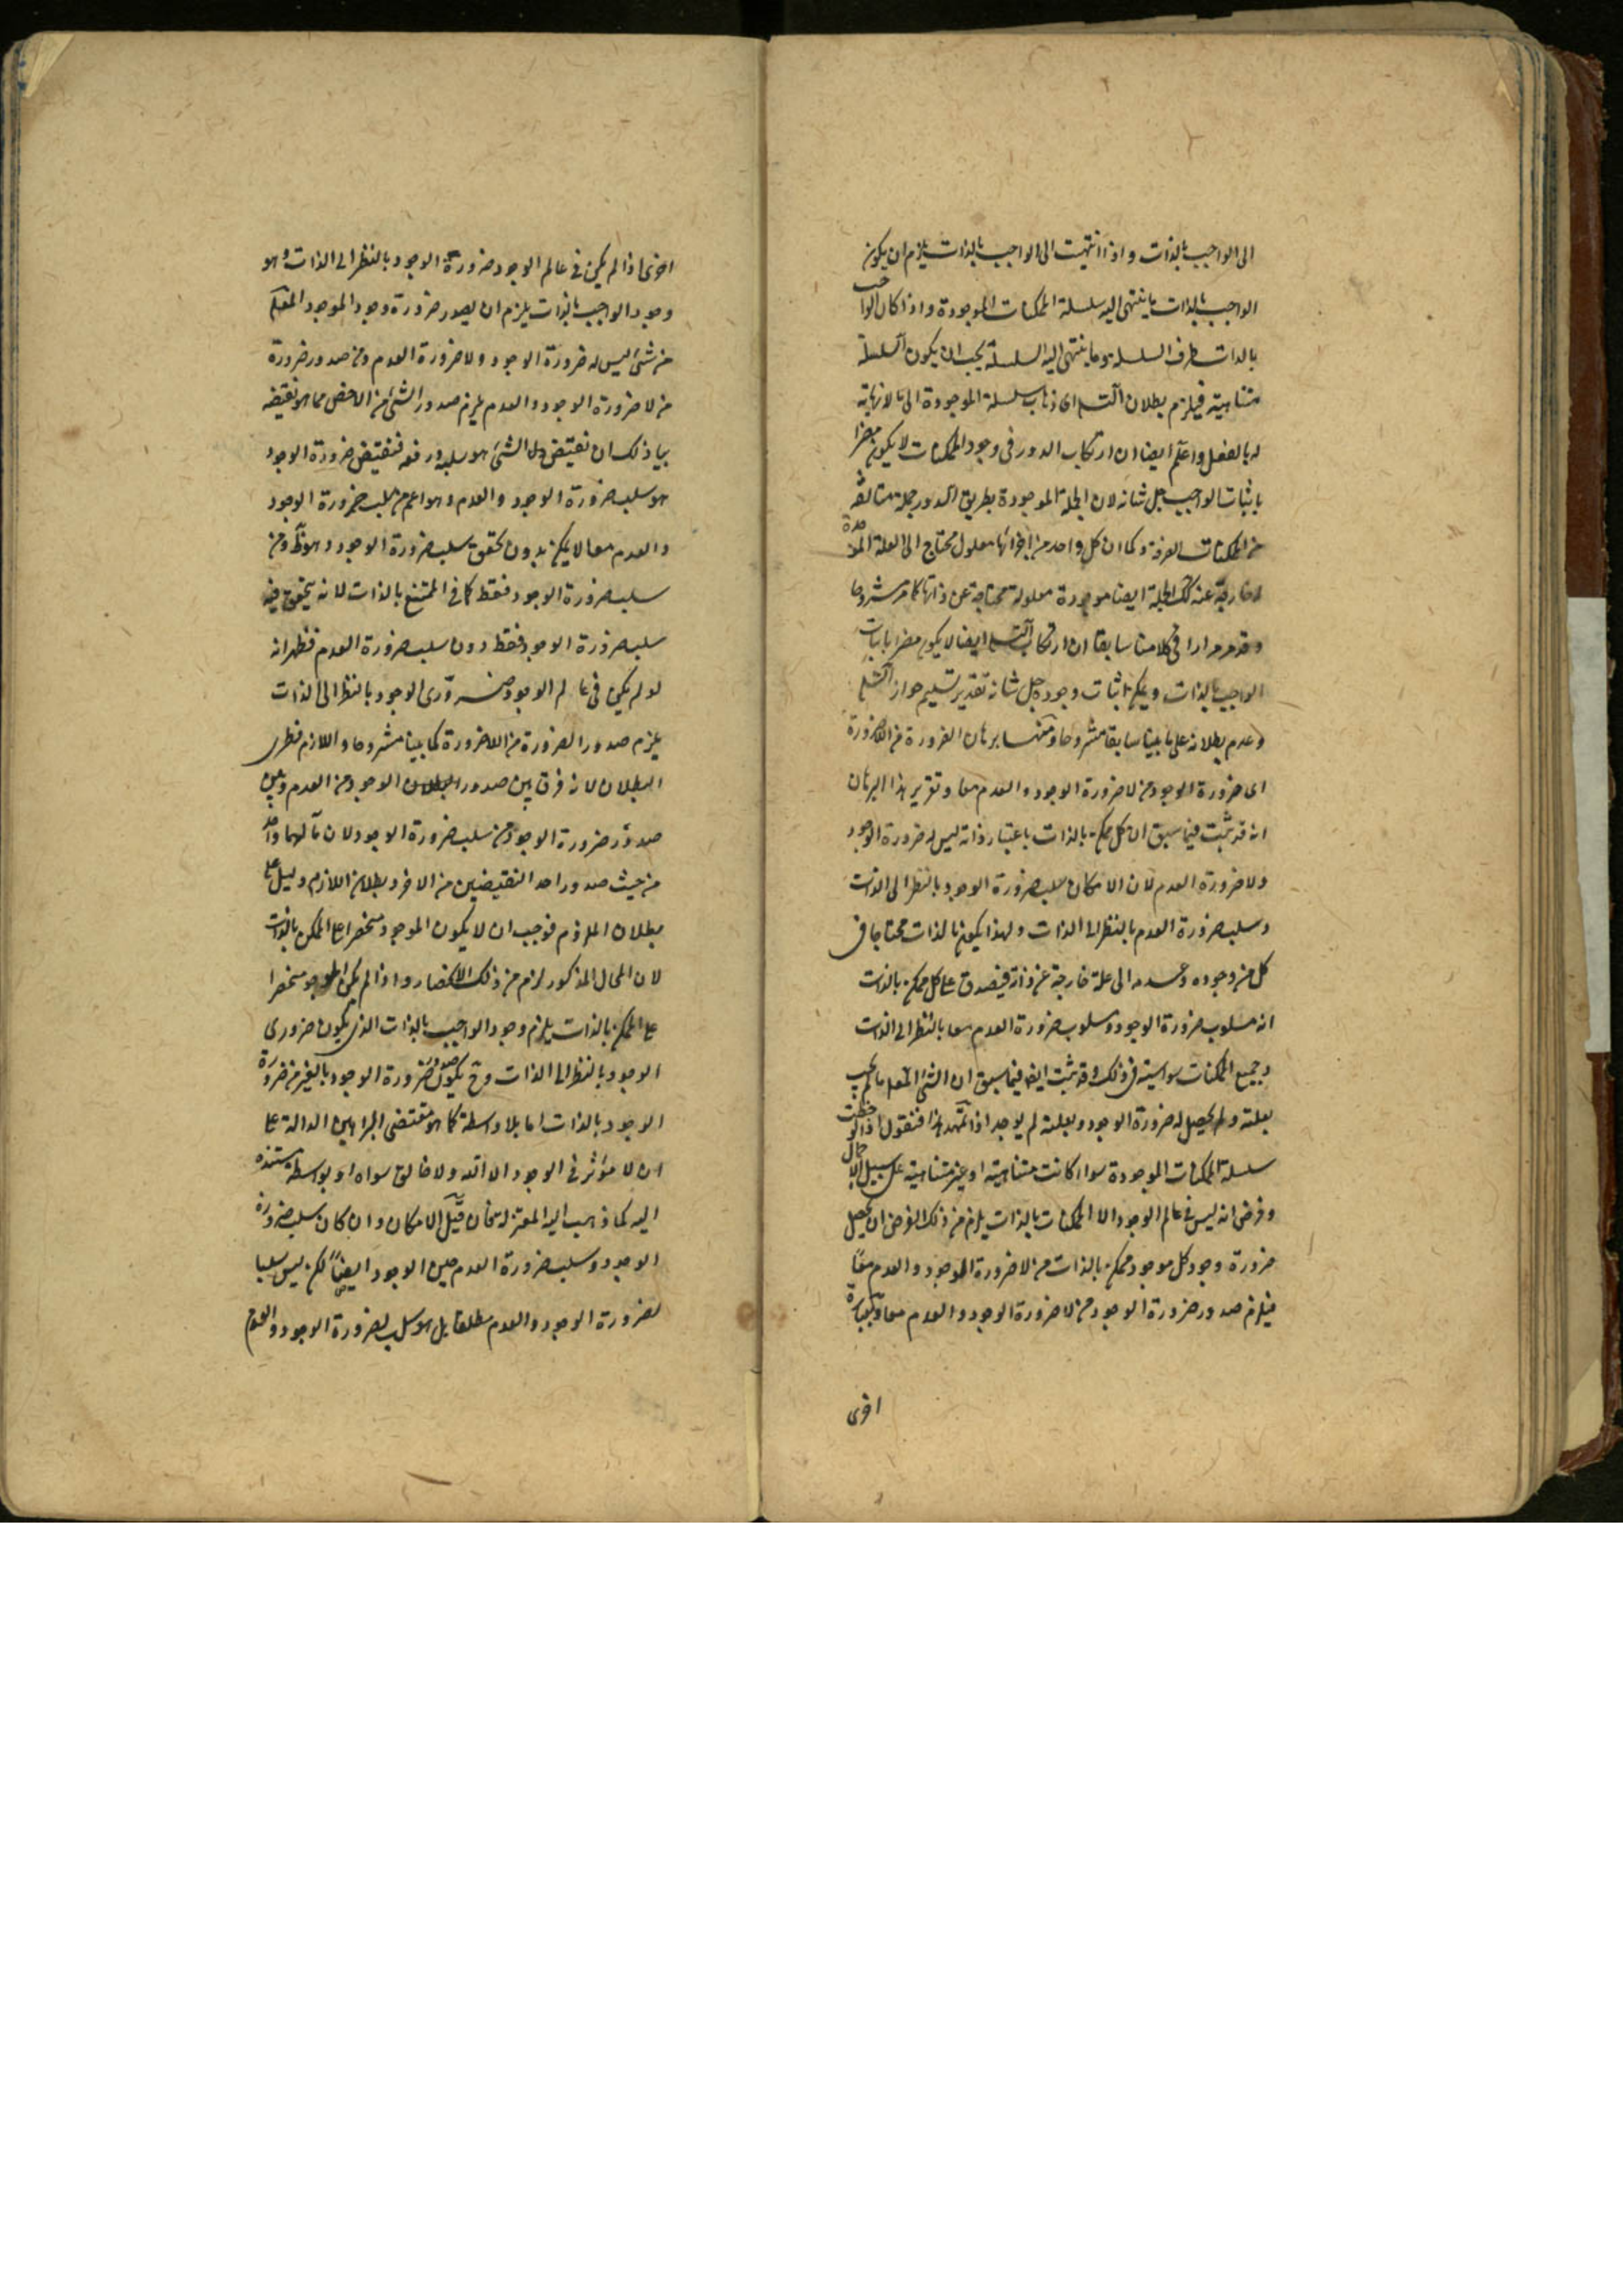 الى الواجب بالذات و اذا انتهيت الى الواجب بالذات يلزم ان يكون
الواجب بالذات ما ينتهى اليه سلسلة الممكنات الموجودة و اذا كان الواجب
بالذات طرف السلسلة وما ينتهى اليه السلسلة يجب ان يكون السلسلة
متناهية فيلزم بطلان التسلسل اى ذهاب سلسلة الموجودة الى ما لا نهاية
له بالفعل واعلم ايضا ان ارتكاب الدور فى وجود الممكنات لا يكون مضرا
باثبات الواجب جل شانه لان الجملة الموجودة بطريق الدور جملة متالفة
من الممكنات الصرفة وكما ان كل واحد من اجزائها معلول محتاج الى العلة الموجدة
الخارجة عنه كذلك الجملة ايضا موجودة معلولة محتاجة عن ذاتها كما مر مشروحا
و قد مر مرارا فى كلامنا سابقا ان ارتكاب التسلسل ايضا لا يكون مضرا باثبات
الواجب بالذات و يمكن اثبات وجوده جل شانه تقدير تسليم جواز التسلسل
وعدم بطلانه على ما بينا سابقا مشروحا ومنها برهان الضرورة من اللاضرورة
اى ضرورة الوجود من لا ضرورة الوجود و العدم معا و تقرير هذا البرهان
انه قد ثبت فيما سبق ان كل ممكن بالذات باعتبار ذاته ليس له ضرورة الوجود
ولا ضرورة العدم لان الامكان سلب ضرورة الوجود بالنظر الى الذات
و سلب ضرورة العدم بالنظر الى الذات و لهذا يكون بالذات محتاجا فى
كل من وجوده وعدمه الى علة خارجة عن ذاته فيصدق على كل ممكن بالذات
انه مسلوب ضرورة الوجود و مسلوب ضرورة العدم معا بالنظر الى الذات
و جميع الممكنات سواسية فى ذلك وقد ثبت ايضا فيما سبق ان الشئ المعلول ما لم يجب
بعلته و لم يحصل له ضرورة الوجود بعلته لم يوجد اذا تمهد هذا فنقول اذا لوحظت
سلسلة الممكنات الموجودة سواء كانت متناهية او غير متناهية على سبيل الاجمال
و فرض انه ليس فى عالم الوجود الا الممكنات بالذات يلزم من ذلك الفرض ان يحصل
ضرورة وجود كل موجود ممكن بالذات من لا ضرورة الوجود و العدم معا
فيلزم صدور ضرورة الوجود من لا ضرورة الوجود و العدم معا وبعبارة
اخرى
اخرى اذا لم يكن فى عالم الوجود ضرورة الوجود بالنظر الى الذات وهو
وجود الواجب بالذات يلزم ان يصدر ضرورة وجود الموجود المعلول
من شئ ليس له ضرورة الوجود و لا ضرورة العدم ومن صدور ضرورة
من لا ضرورة الوجود و العدم يلزم صدور الشئ من الاخص مما هو نقيضه
بيان ذلك ان نقيض كل الشئ هو سلبه ورفعه فنقيض ضرورة الوجود
هو سلب ضرورة الوجود و العدم وهو اعم من سلب ضرورة الوجود
و العدم معا لا يمكن بدون تحقق سلب ضرورة الوجود وهو ظ ومن
سلب ضرورة الوجود فقط كما فى الممتنع بالذات لانه يتحقق فيه
سلب ضرورة الوجود فقط دون سلب ضرورة العدم فظهر انه
لو لم يكن فى عالم الوجود ضرورى الوجود بالنظر الى الذات
يلزم صدور الضرورة من اللاضرورة كما بينا مشروحا و اللازم فطرى
البطلان لانه فرق بين صدور الوجود من العدم و بين
صدور ضرورة الوجود من سلب ضرورة الوجود لان مآلهما واحد
من حيث صدور احد النقيضين من الاخر و بطلان اللازم دليل على
بطلان الملزوم فوجب ان لا يكون الموجود منحصرا على الممكن بالذات
لان المحال المذكور لزم من ذلك الانحصار و اذا لم يكن الموجود منحصرا
على الممكن بالذات يلزم وجود الواجب بالذات الذى يكون ضرورى
الوجود بالنظر الى الذات وح يكون صدور ضرورة الوجود بالغير من ضرورة
الوجود بالذات اما بلا واسطة كما هو مقتضى البراهين الدالة على
ان لا مؤثر فى الوجود الا الله ولا خالق سواه او بواسطة مستنده
اليه كما ذهب اليه المعتزلة فان قيل الامكان و ان كان سلب ضرورة
الوجود و سلب ضرورة العدم حين الوجود ايضا لكن ليس سلبا
لضرورة الوجود و العدم مطلقا بل هو سلب لضرورة الوجود و العدم